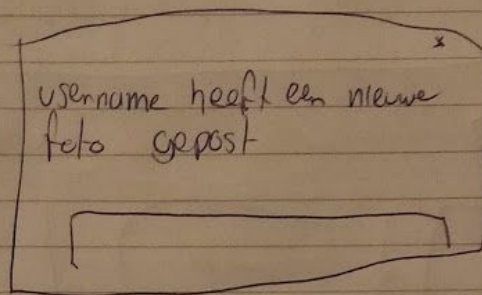 x
username heeft een nieuwe
foto gepost